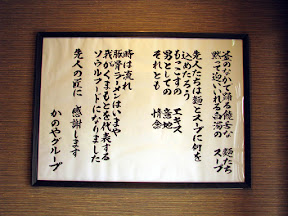 釜のなかで踊る饒舌な 麺たち
黙って迎いいれる白湯の スープ
先人たちは麺とスープに何を
込めたろう エキス
もっこすの 意地
男としての 情念
それとも
時は流れ
豚骨ラーメンはいまや
我がくまもとを代表する
ソウルフードになりました
先人の匠に 感謝します
かのやグループ